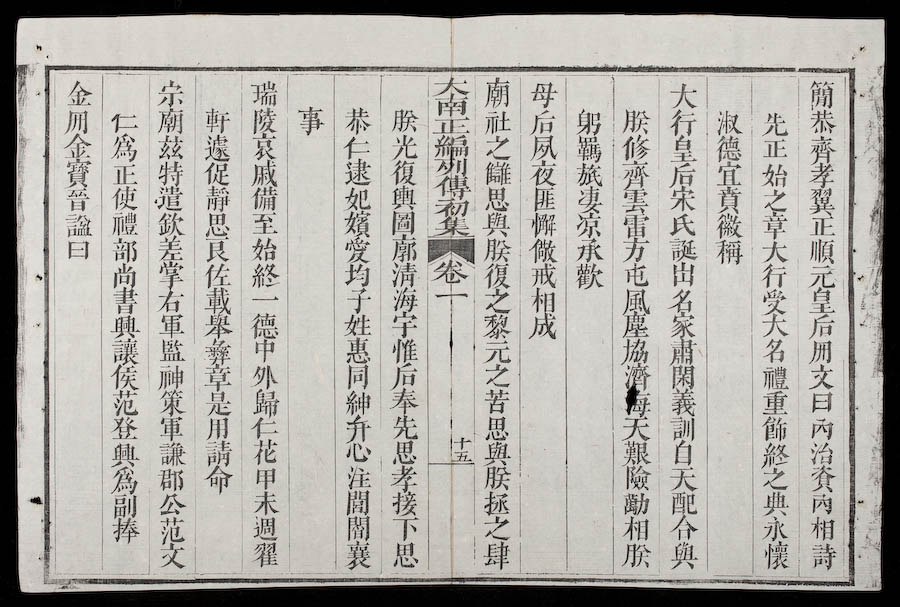 簡恭齊孝翼正順元皇后册文曰內治資內相詩
先正始之章大行受大名禮重飾終之典永懷
淑德宜賁徽稱
大行皇后宋氏誕出名家肅閑義訓自天配合與
朕修齊雲雷方屯風塵協濟海天艱險勵相朕
躬羈旅凄凉承歡
母后夙夜匪懈儆戒相成
廟社之讎思與朕復之黎元之苦思與朕拯之肆
大南正編列傳初集 卷一 十五
朕光復輿圖廓淸海宇惟后奉先思孝接下思
恭仁逮妃嬪愛均子姓惠同紳弁心注閭閻襄
事
瑞陵哀戚備至始終一德中外歸仁花甲未週翟
軒遽促靜思良佐載舉彝章是用請命
宗廟茲特遣欽差掌右軍監神策軍謙郡公范文
仁爲正使禮部尚書興讓侯范登興爲副捧
金册金寶晉諡曰